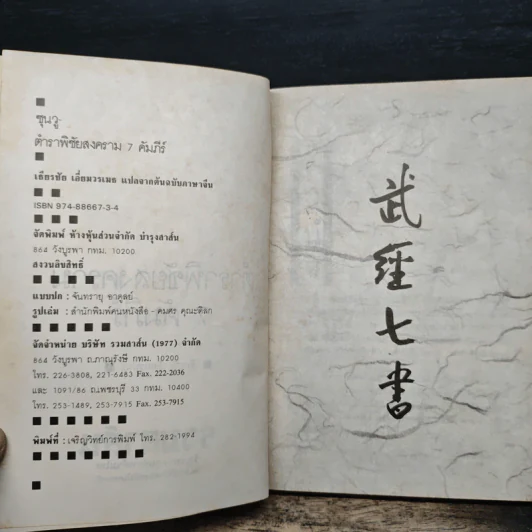 ซุนวู
ตำราพิชัยสงคราม 7 คัมภีร์
เธียรชัย เอี่ยมวรเมธ แปลจากต้นฉบับภาษาจีน
ISBN 974-88667-3-4
จัดพิมพ์ ห้างหุ้นส่วนจำกัด บำรุงสาส์น
864 วังบูรพา กทม. 10200
สงวนลิขสิทธิ์
แบบปก : จันทรายุ ชาตูลย์
รูปเล่ม : สำนักพิมพ์คนหนังสือ - คมศร คุณะดิลก
จัดจำหน่าย บริษัท รวมสาส์น (1977) จำกัด
864 วังบูรพา ถ.ภาณุรังษี กทม. 10200
โทร. 226-3808, 221-6483 Fax. 222-2036
และ 1091/86 ถ.เพชรบุรี 33 กทม. 10400
โทร. 253-1489, 253-7915 Fax. 253-7915
พิมพ์ที่ : เจริญวิทย์การพิมพ์ โทร. 282-1994
武經七書